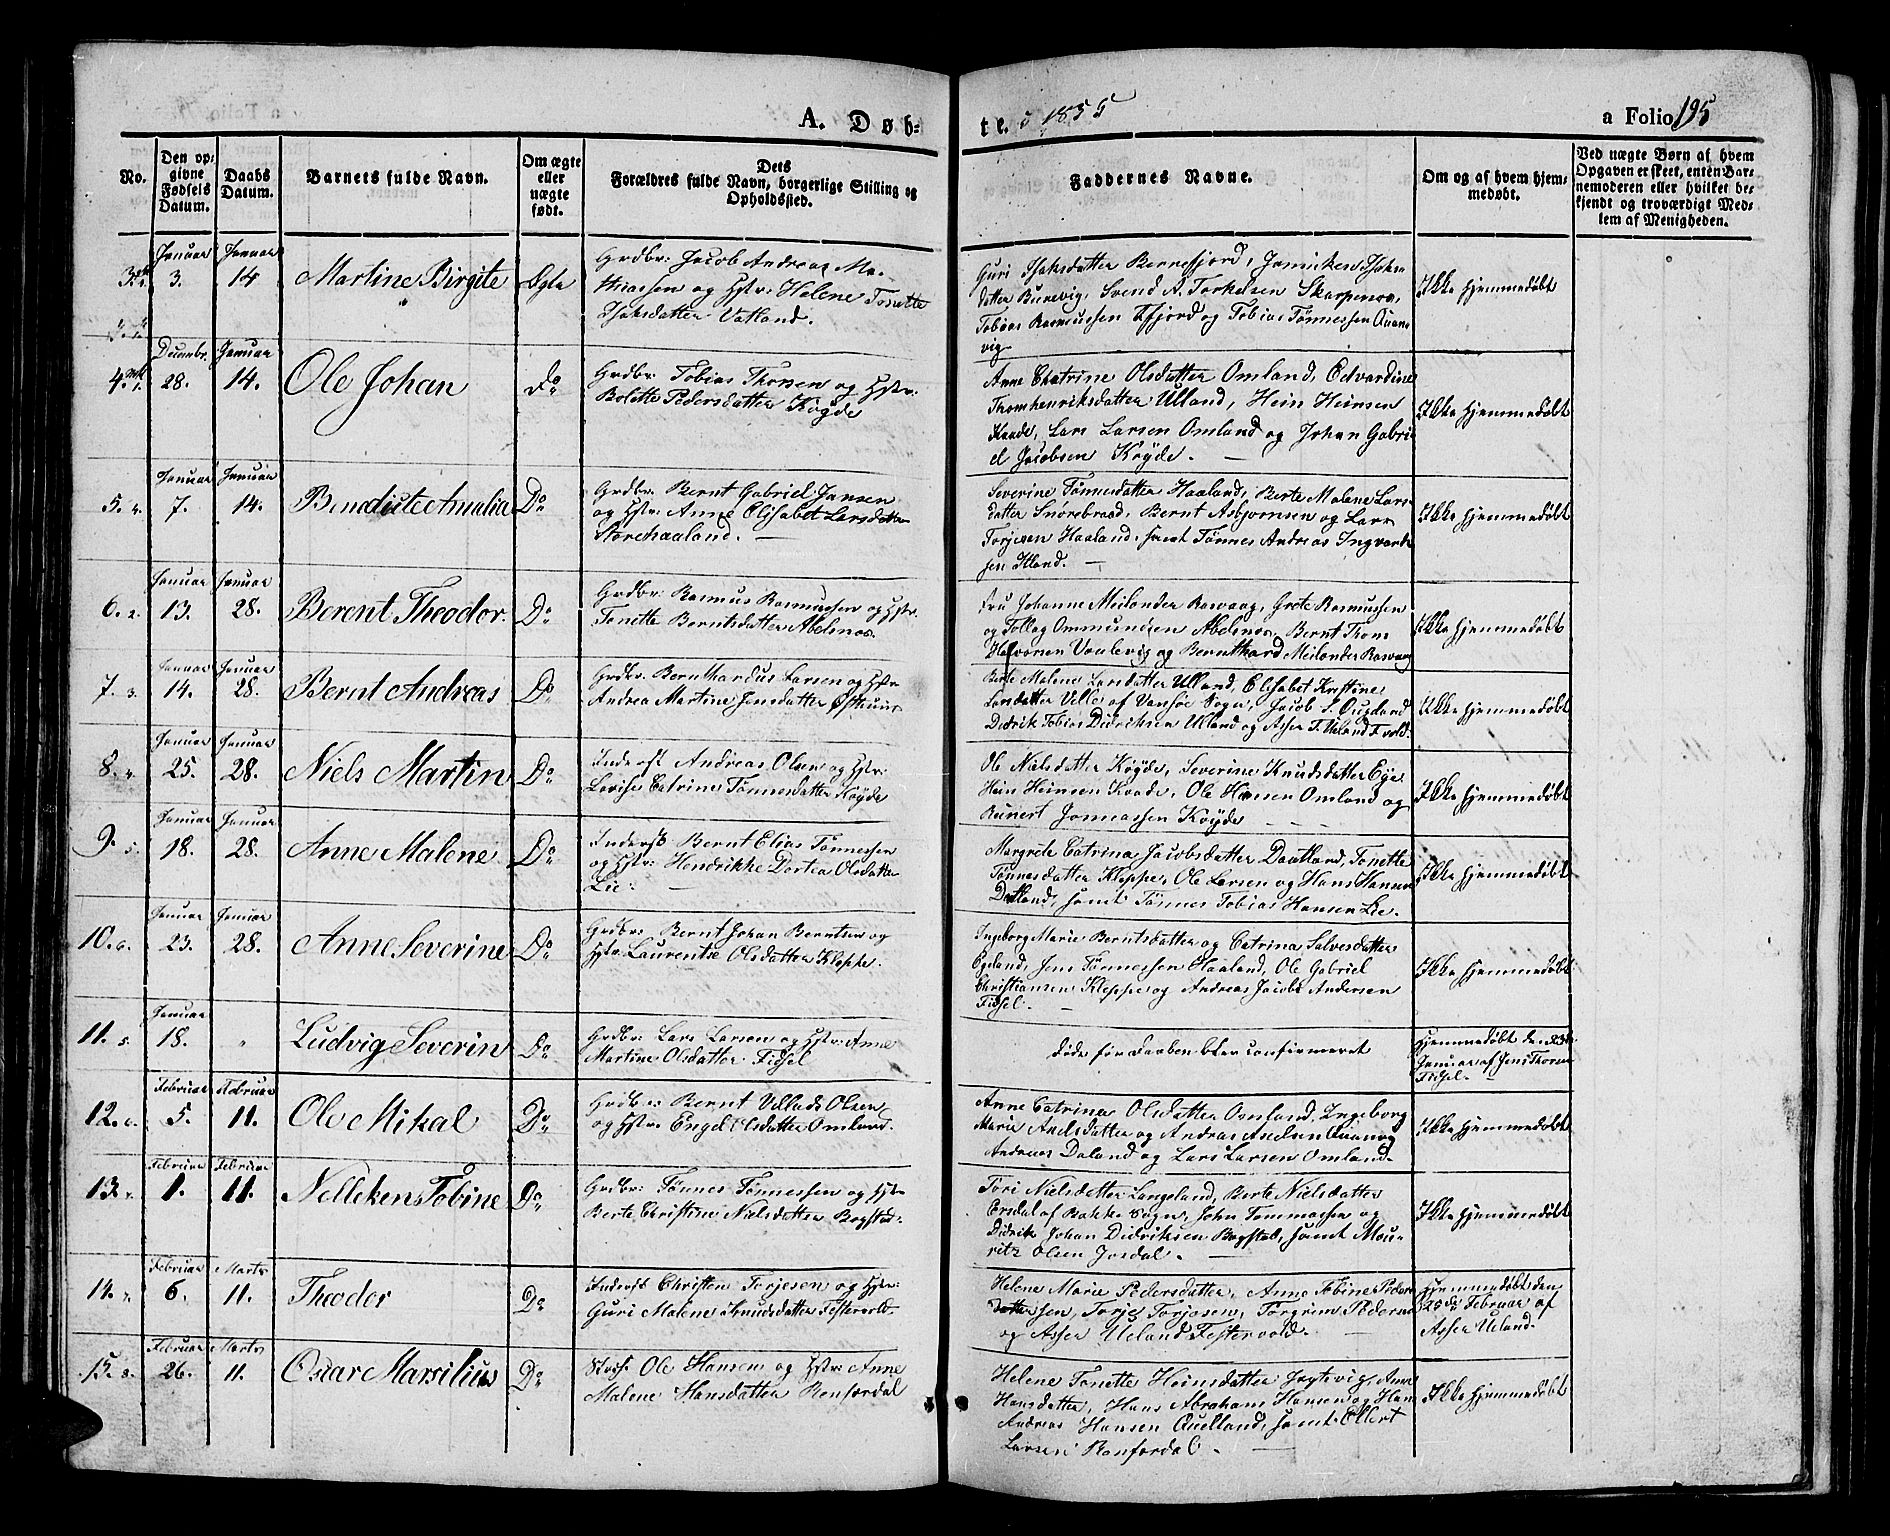 A. Døb-
te. i 1855
a Folio 195
No.
Den op-
givne
Fødsels
Datum.
Daabs
Datum.
Barnets fulde Navn.
Om ægte
eller
uægte
født.
Dets
Forældres fulde Navn, borgerlige Stilling og
Opholdssted.
Faddernes Navne.
Om og af hvem hjem-
medøbt.
Ved uægte Børn af hvem
Opgaven er skeet, enten Bar-
nemoderen eller hvilket be-
kjendt og troværdigt Med-
lem af Menigheden.
3.
Januar
3.
Januar
14
Martine Birgite
Egte
Grdbr: Jacob Andreas Ma-
thiassen og Hstr: Helene Tonette
Isaksdatter Vatland.
Guri Isaksdatter Bernefjord, Jamikken Isaks
datter Bunevig, Svend A. Torkelsen Skarpenes,
Tobias Rasmussen Fjord og Tobias Tønnessen Quane
vig
Ikke hjemmedøbt
4.
Decembr.
28.
Januar
14.
Ole Johan
Do
Grdbr: Tobias Thorsen og Hstr:
Bolette Pedersdatter Køyde
Anne Chatrine Olsdatter Omland, Edvardine
Thomhenriksdatter Ulland, Hein Heinsen
Kaade, Lars Larsen Omland og Johan Gabri
el Jacobsen Køyde.
Ikke hjemmedøbt
5.
Januar
7.
Januar
14.
Benedicte Amalia
Do
Grdbr: Bernt Gabriel Jansen
og Hstr: Anne Elisabet Larsdatter
Storehaaland.
Severine Tønnesdatter Haaland, Berte Malene Lars
datter Snorebraad, Bernt Asbjornsen og Lars
Torjesen Haaland, samt Tønnes Andreas Ingvards
sen Iland.
Ikke hjemmedøbt
6.
Januar
13.
Januar
28.
Berent Theodor.
Do
Grdbr: Rasmus Rasmussen og Hstr.
Tonette Berntsdatter Abelsnes.
Fru Johanne Meilænder Rasvaag, Grete Rasmussen
og Tollag Ommundsen Abelsnes, Bernt Thom
Halvorsen Vaulevig og Bernthard Meilænder Rasvaag
Ikke hjemmedøbt
7.
Januar
14.
Januar
28.
Bernt Andreas
Do
Grdbr: Bernthardus Larsen og Hstr
Andrea Martine Jensdatter
Berte Malene Larsdatter Ulland, Elisabet Kristine
Larsdatter Velle af Vansøe Sogn, Jacob S. Ougland
Didrik Tobias Didriksen Ulland og Asser T. Ueland F.vold.
Ikke hjemmedøbt
8.
Januar
25.
Januar
28.
Niels Martin
Do
Inderst Andreas Olsen og Hstr:
Lovise Catrine Tønnesdatter Køyde
Ole Nielsdatter Køyde, Severine Knudsdatter Eye
Hein Heinsen Kaade, Ole Hansen Omland og
Reinert Jonnassen Køyde
Ikke hjemmedøbt
9.
Januar
18.
Januar
28.
Anne Malene
Do
Inderst Bernt Elias Tønnessen
og Hstr: Hendrikke Dortea Olsdatter
Lie.
Margrete Catrina Jacobsdatter Daatland, Tonette
Tønnesdatter Kleppe, Ole Larsen og Hans Hansen
Datland, samt Tønnes Tobias Hansen Lie.
Ikke hjemmedøbt
10.
Januar
23.
Januar
28.
Anne Severine
Do
Grdbr: Bernt Johan Berntsen og
Hstr: Laurentse Olsdatter Kleppe.
Ingeborg Marie Berntsdatter og Catrina Salvesdatter
Egeland, Jens Tønnessen Haaland, Ole Gabriel
Christiansen Kleppe og Andreas Jacob Andersen
Fidsel.
Ikke hjemmedøbt
11.
Januar
18.
"
Ludvig Severin
Do
Grdbr: Lars Larsen og Hstr: Anne
Martine Olsdatter Fidsel
Døde før Daaben blev confirmeret
Hjemmedøbt den 23de
Januar af Jens Thorsen
Fidsel.
12.
Februar
5.
Februar
11.
Ole Mikal
Do
Grdbr: Bernt Villads Olsen
og Hstr: Engel Olsdatter Omland.
Anne Catrina Olsdatter Omland, Ingeborg
Marie Axelsdatter og Andreas Axelsen Quanvig
Andreas Daland og Lars Larsen Omland.
Ikke hjemmedøbt
13.
Februar
1.
Februar
11.
Nelleken Tobine
Do
Grdbr: Tønnes Tønnessen og Hstr
Berte Christine Nielsdatter Bogstad.
Tori Nielsdatter Langeland, Berte Nielsdatter
Ersdal af Bakke Sogn, John Tommassen og
Didrik Johan Didriksen Bogstad, samt Mou-
ritz Olsen Josdal.
Ikke hjemmedøbt
14.
Februar
6.
Marts
11.
Theodor
Do
Inderst Christen Torjesen og Hstr:
Guri Malene Knudsdatter Festervold.
Helene Marie Pedersdatter, Anne Tobine Peders
datter sen, Torje Torjesen, Torgrim Pedersen
og Asser Ueland Festervold.
Hjemmedøbt den
25de Februar af
Asser Ueland.
15.
Februar
26.
Marts
11.
Oscar Marsilius
Do
Ole Hansen og Hstr: Anne
Malene Hansdatter Ronfordal
Helene Tonette Heinsdatter Jegtvig, Anne
Hansdatter, Hans Abraham Hansen og Hans
Andreas Hansen Quelland, samt Ellert
Larsen Ronfordal.
Ikke hjemmedøbt